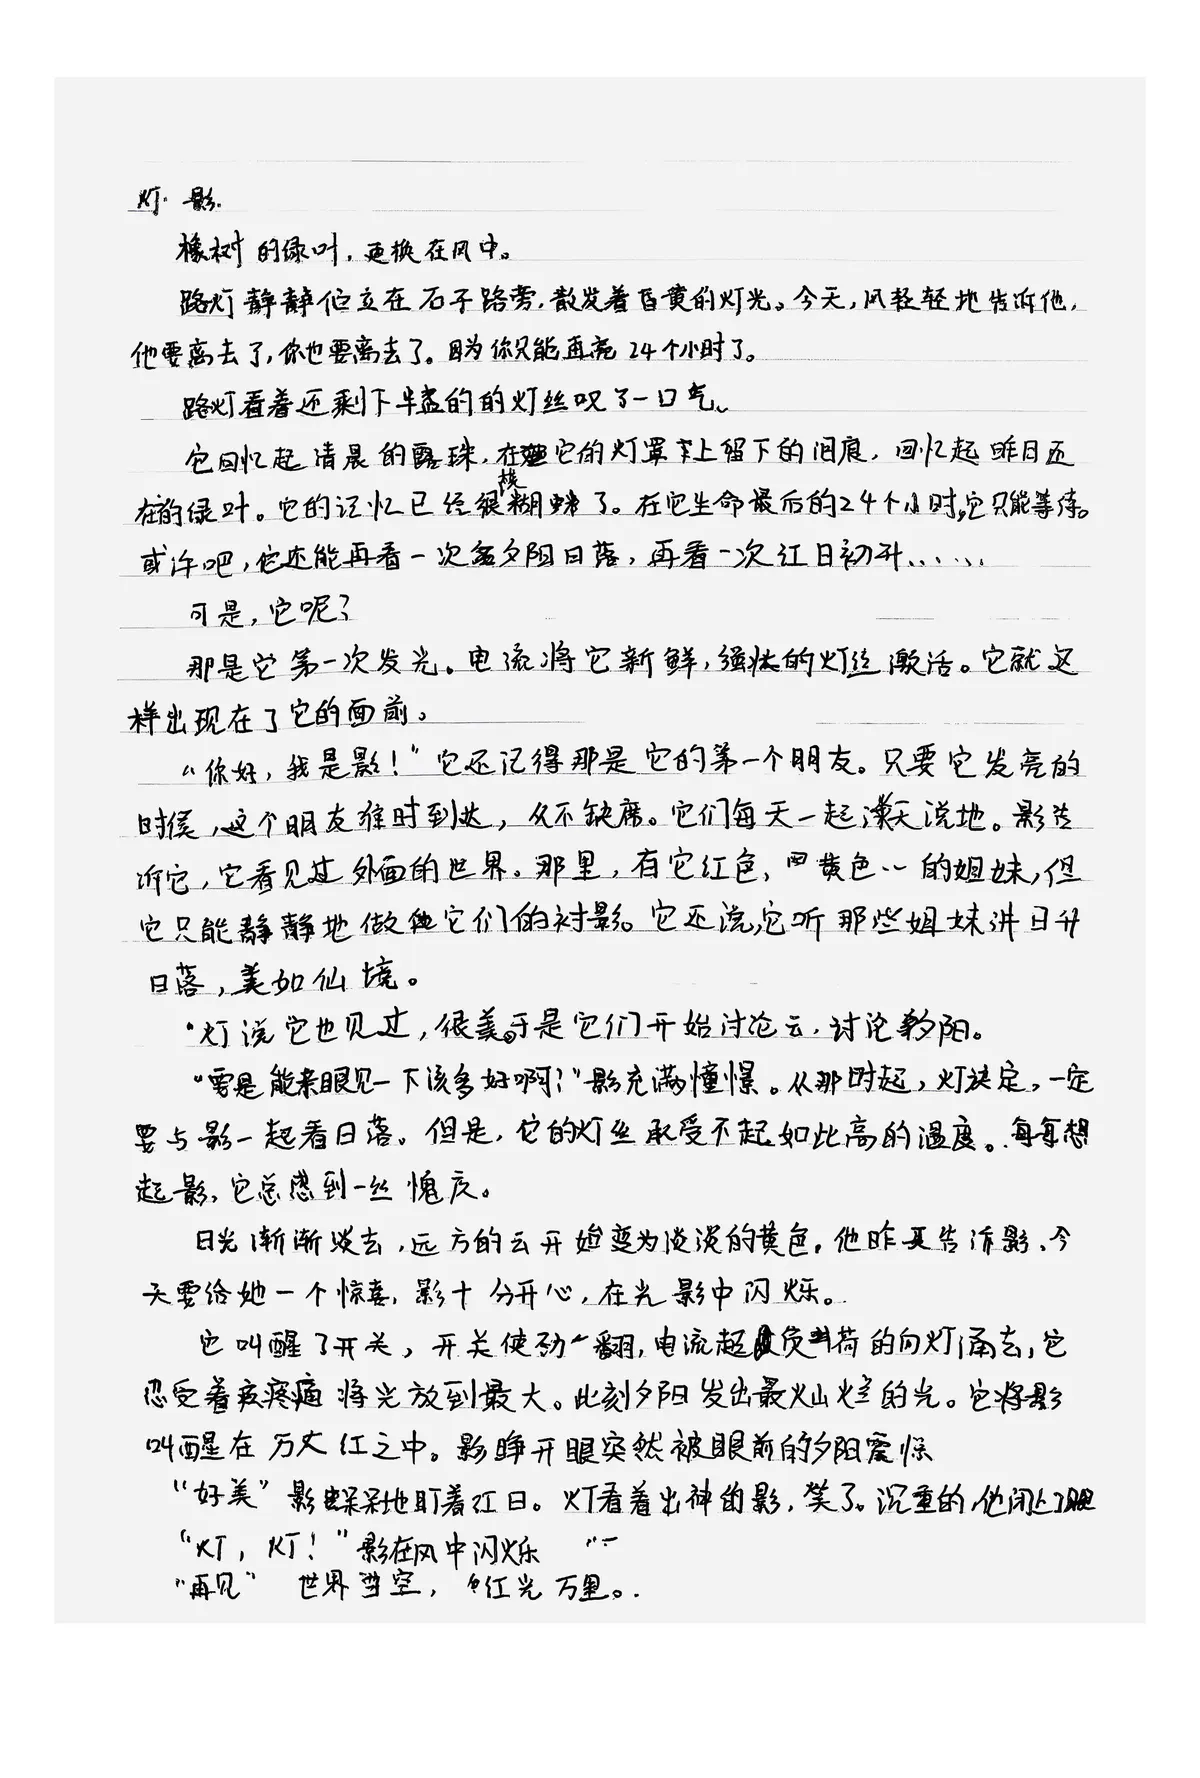 灯·影.
橡树的绿叶，更换在风中。
路灯静静伫立在石子路旁，散发着昏黄的灯光。今天，风轻轻地告诉他，
他要离去了，你也要离去了。因为你只能再亮24个小时了。
路灯看着还剩下半截的的灯丝叹了一口气、
它回忆起清晨的露珠，在它的灯罩上留下的泪痕，回忆起昨日还
在的绿叶。它的记忆已经很模糊了。在它生命最后的24个小时，它只能等待。
或许吧，它还能再看一次夕阳日落，再看一次红日初升......
可是，它呢？
那是它第一次发光。电流将它新鲜，强壮的灯丝激活。它就这
样出现在了它的面前。
“你好，我是影！”它还记得那是它的第一个朋友。只要它发亮的
时候，这个朋友准时到达，从不缺席。它们每天一起谈天说地。影告
诉它，它看见过外面的世界。那里，有它红色、黄色…的姐妹，但
它只能静静地做它们的衬影。它还说，它听那些姐妹讲日升
日落，美如仙境。
“灯说它也见过，很美。于是它们开始讨论云，讨论夕阳。
“要是能亲眼见一下该多好啊！”影充满憧憬。从那时起，灯决定，一定
要与影一起看日落。但是，它的灯丝承受不起如此高的温度。每每想
起影，它总感到一丝愧疚。
日光渐渐淡去，远方的云开始变为淡淡的黄色。他昨天告诉影、今
天要给她一个惊喜，影十分开心，在光影中闪烁。
它叫醒了开关，开关使劲一翻，电流超负荷的向灯涌去，它
忍受着疼痛将光放到最大。此刻夕阳发出最灿烂的光。它将影
叫醒在万丈红之中。影睁开眼突然被眼前的夕阳震惊
“好美”影呆呆地盯着红日。灯看着出神的影，笑了。沉重的，他闭上了眼
“灯，灯！”影在风中闪烁 “…
“再见” 世界当空，红光万里。.